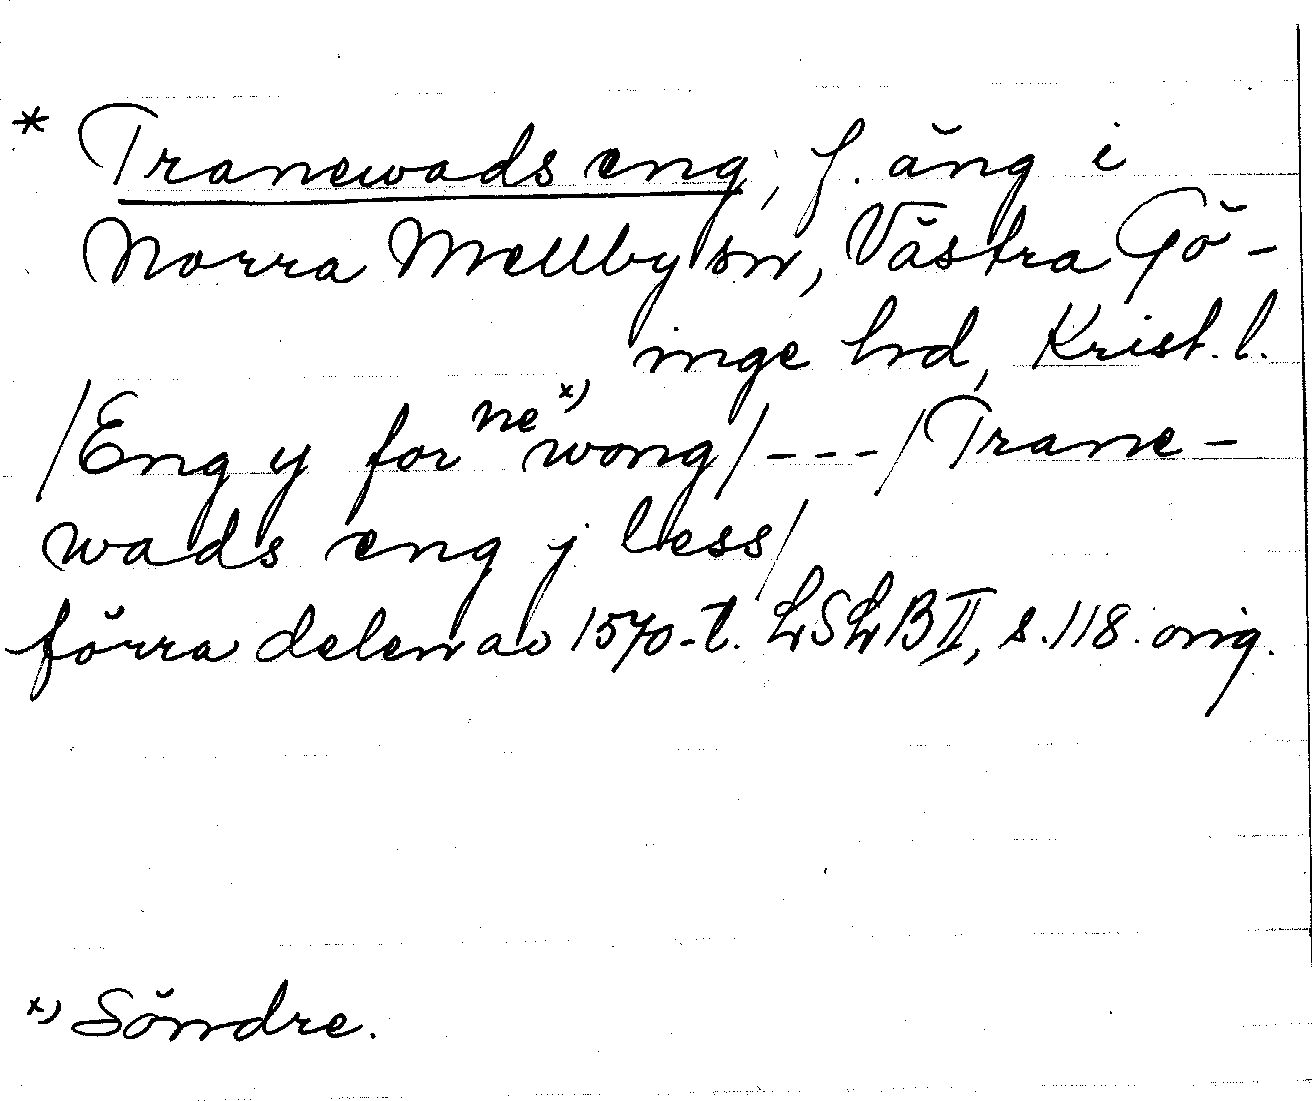 * Tranewads eng, f. äng i
Norra Mellby sn, Västra Gö-
inge hrd, Krist. l.
/Eng y for ne x) wong/---/Trane-
wads eng j less/
förra delen av 1570-t. LSLB II, s. 118. orig.
x) Söndre.